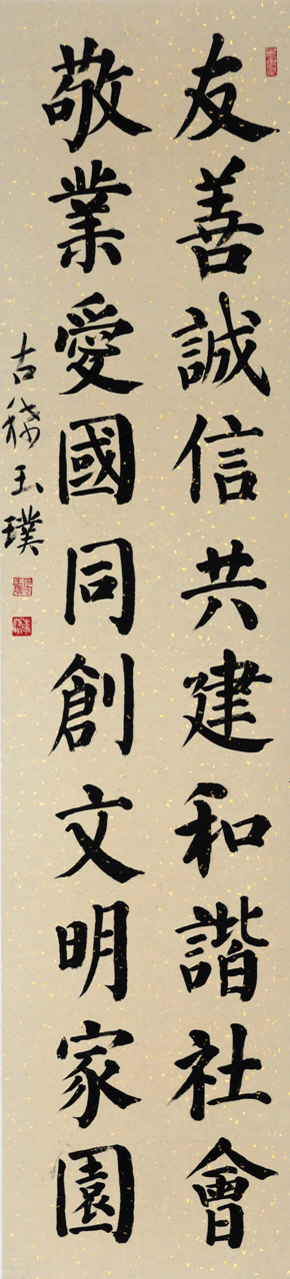 友善誠信共建和諧社會
敬業愛國同創文明家園
古稀玉璞